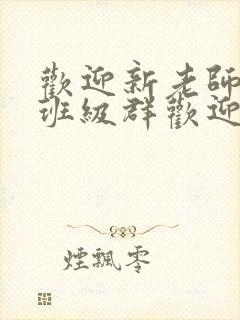 歡迎新老師
班級群歡迎
煙飄零